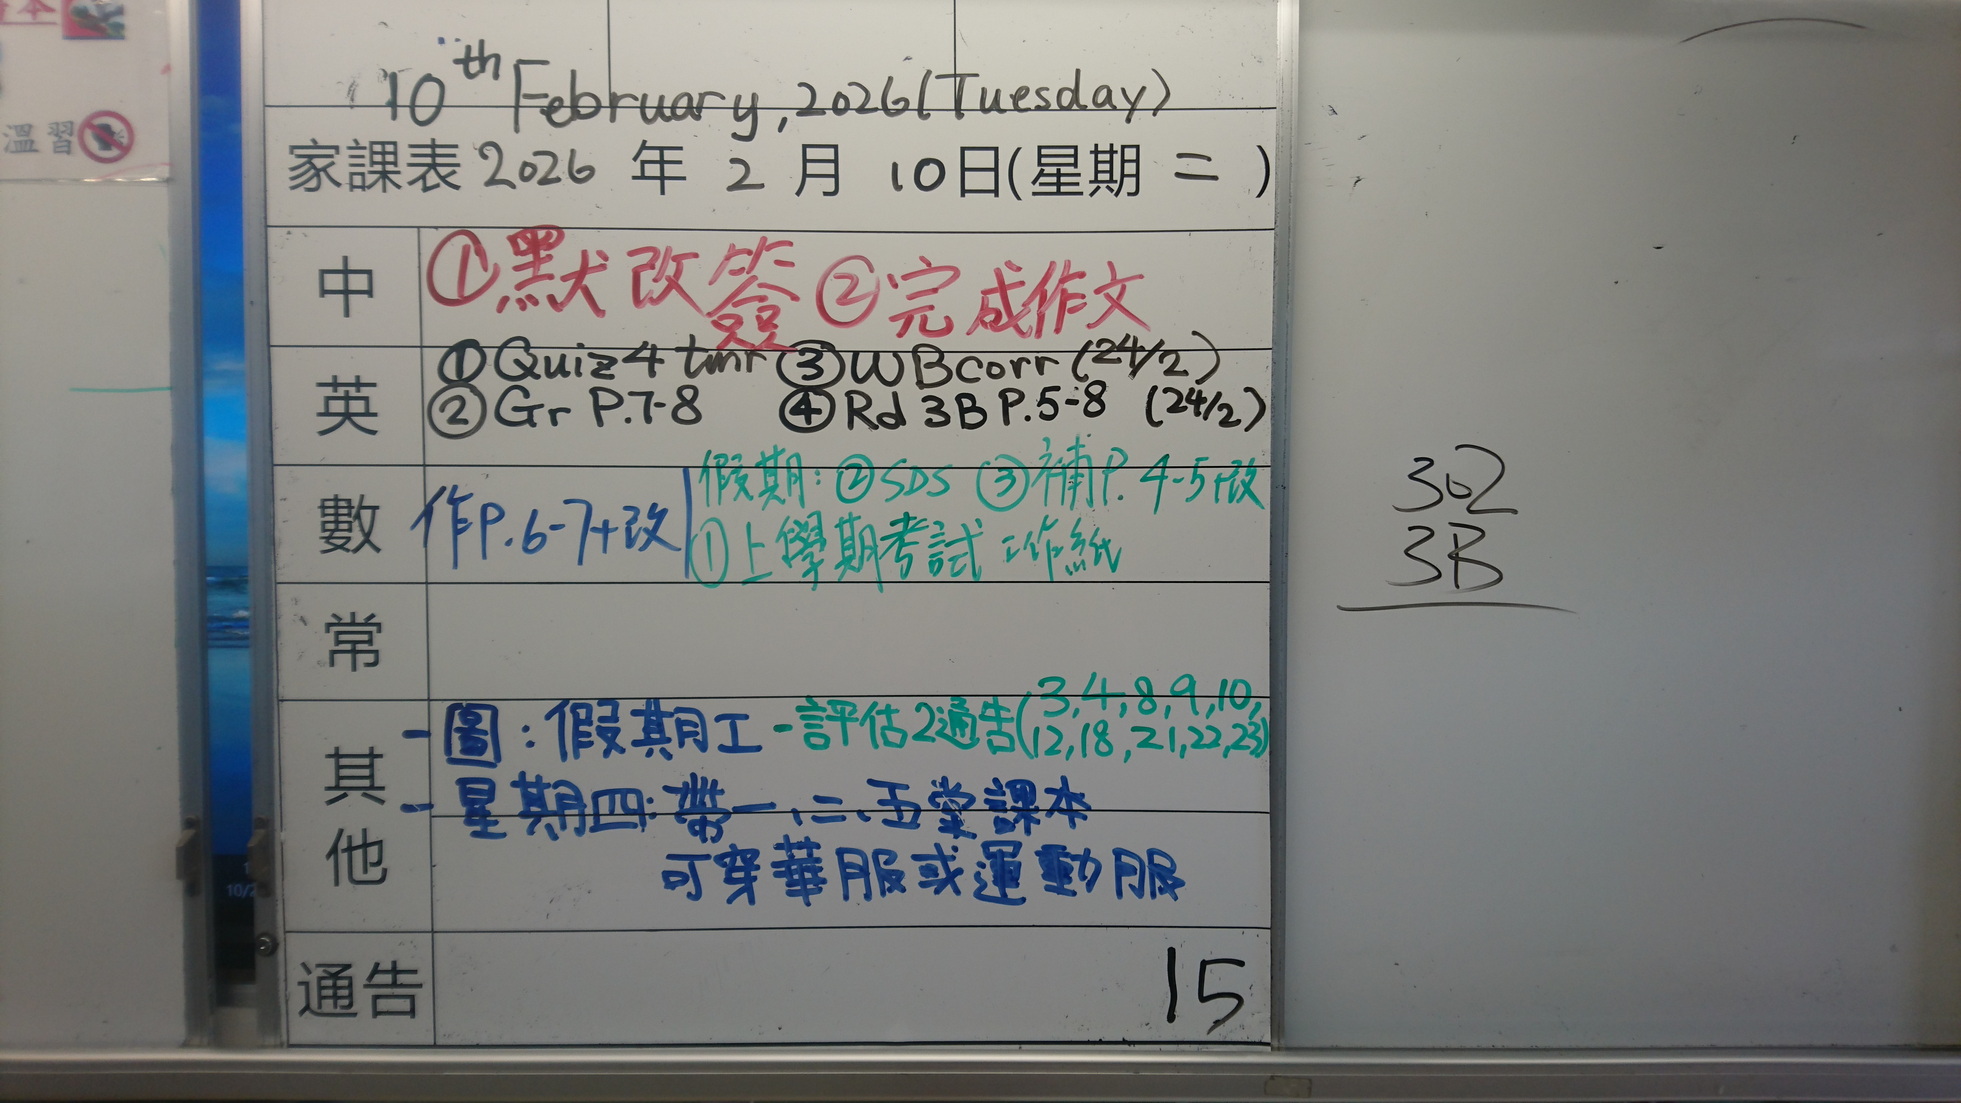 本
溫習
10th February, 2026 (Tuesday)
家課表 2026 年 2 月 10日(星期 二 )
中 ①默改簽 ②完成作文
英 ①Quiz 4 tmr ③WB corr (24/2)
②Gr P.7-8 ④Rd 3B P.5-8 (24/2)
數 作P.6-7+改 假期: ②SDS ③補P. 4-5+改
①上學期考試工作紙
常
其他
-圖: 假期工 -評估2通告(3,4,8,9,10,
12,18,21,22,23)
-星期四: 帶一、二、五堂課本
可穿華服或運動服
通告 15
302
3B